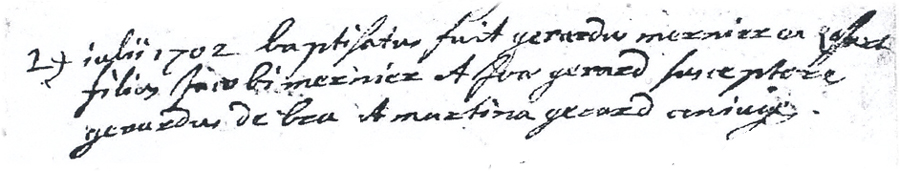 2) iulii 1702 baptisatus fuit gerardus mernier ex
filius Jacobi mernier et gerard susceptore
gerardus de bra et martina gerard coniuges.